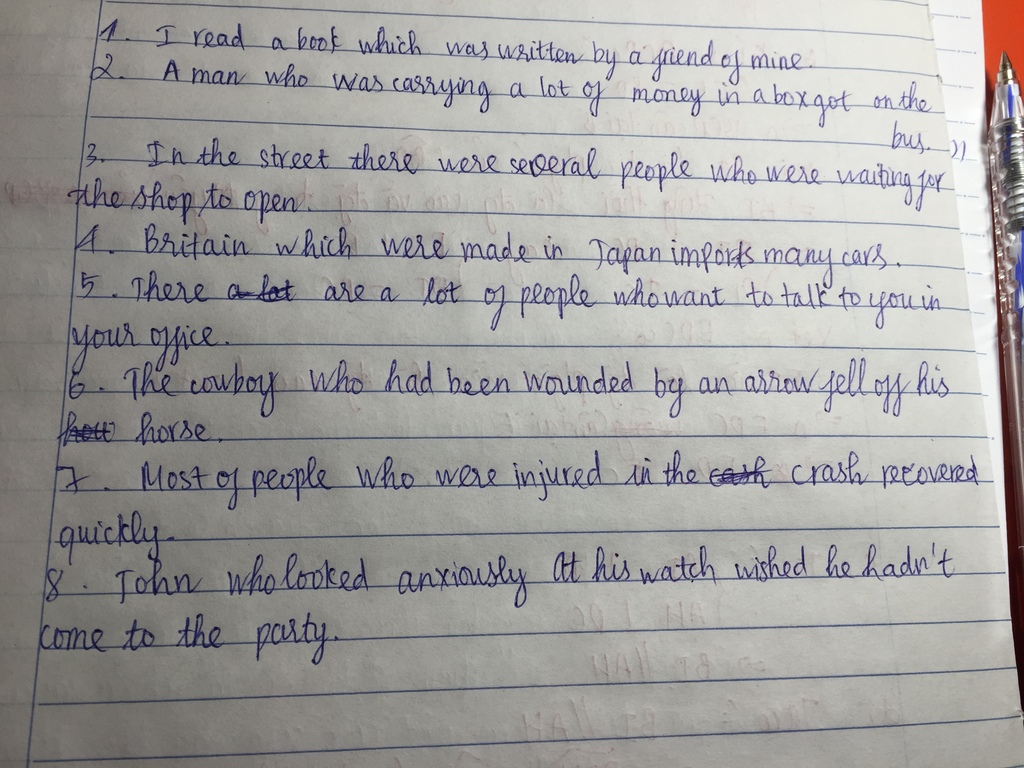 1. I read a book which was written by a friend of mine.
2. A man who was carrying a lot of money in a box got on the
bus.
3. In the street there were several people who were waiting for
the shop to open.
4. Britain which were made in Japan imports many cars.
5. There a lot are a lot of people who want to talk to you in
your office.
6. The cowboy who had been wounded by an arrow fell off his
horse.
7. Most of people who were injured in the crash recovered
quickly.
8. John who looked anxiously at his watch wished he hadn't
come to the party.